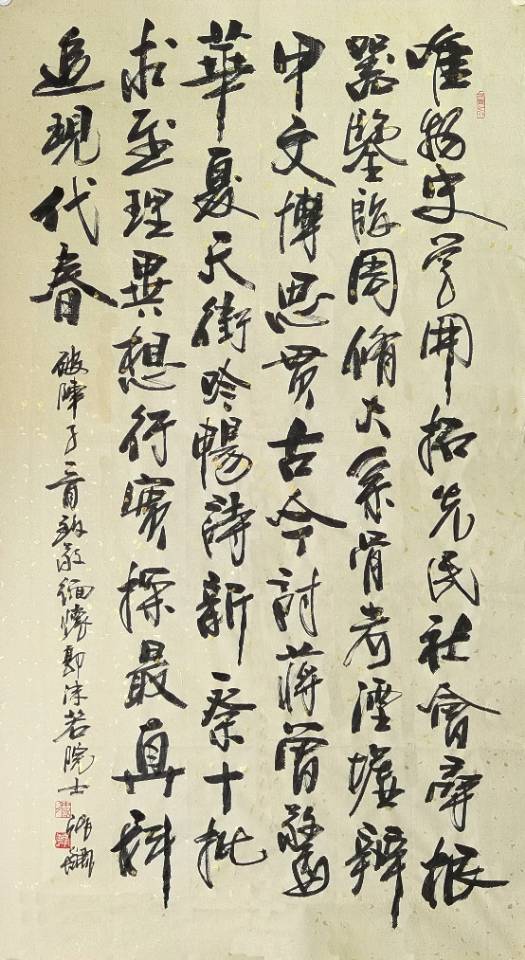 唯物史學開拓先民社會尋根
器鑒臨周脩大系骨考湮墟辨
甲文博思貫古今討蔣曾驚
華夏天街吟暢詩新祭十批
求至理異想行實探最真科
追現代春
破陣子首致敬緬懷郭沫若院士